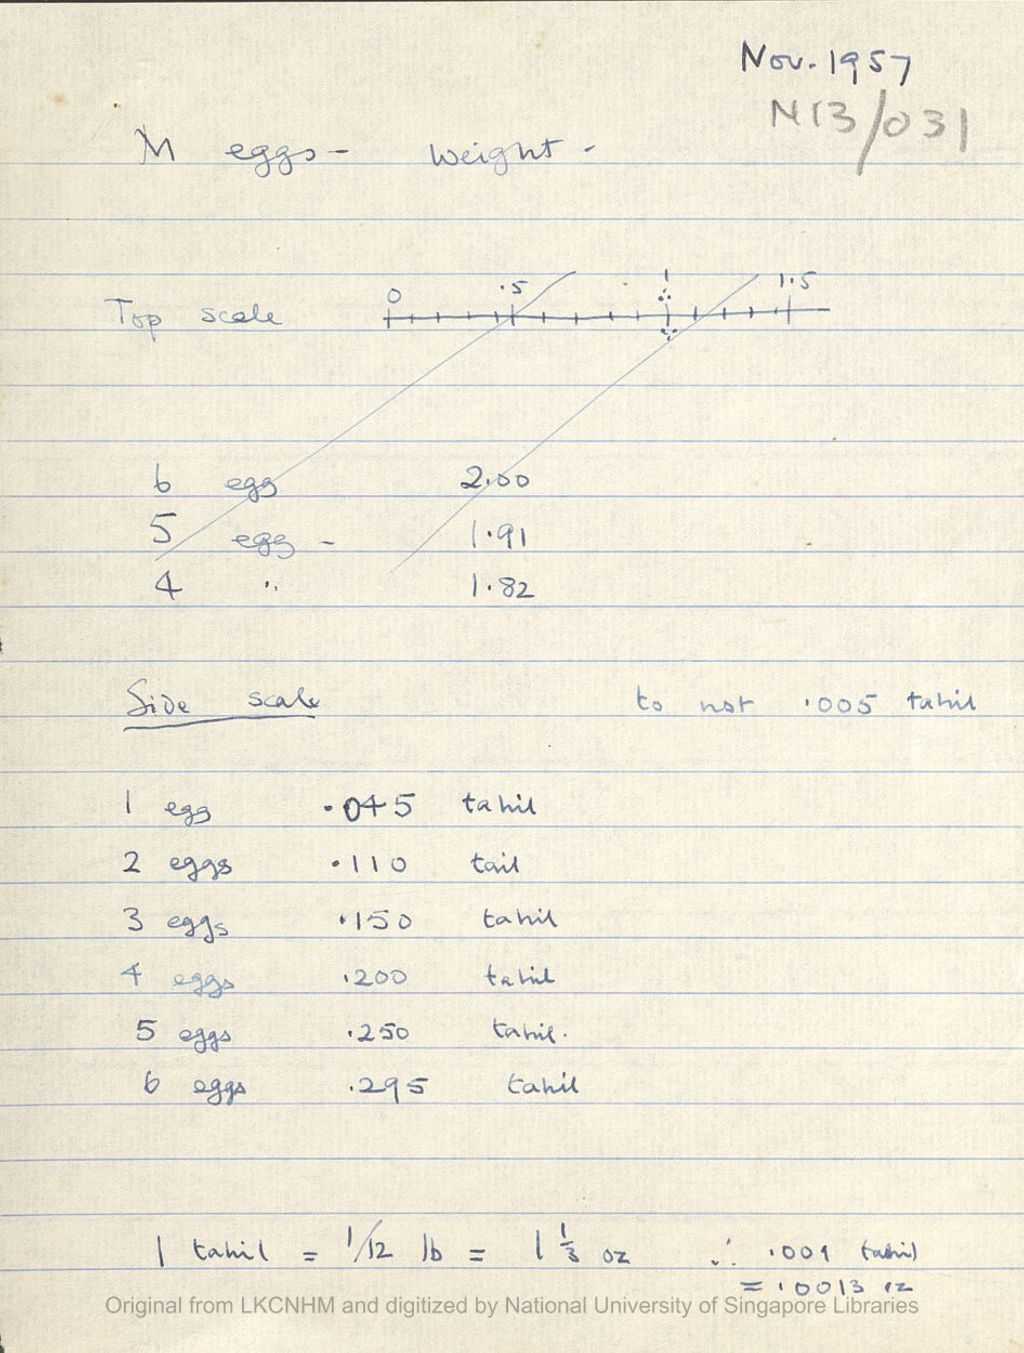 Nov. 1957
N13/031
M eggs - weight -
Top scale 0 .5 1 1.5
6 egg 2.00
5 egg - 1.91
4 " 1.82
Side scale to not .005 tahil
1 egg .045 tahil
2 eggs .110 tail
3 eggs .150 tahil
4 eggs .200 tahil
5 eggs .250 tahil.
6 eggs .295 tahil
1 tahil = 1/12 lb = 1 1/3 oz ∴ .001 tahil
= .0013 oz
Original from LKCNHM and digitized by National University of Singapore Libraries